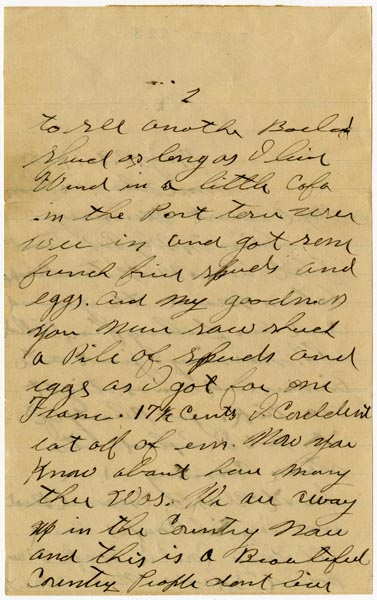 2
to see another Boild
spud as long as I live
Wend in a little Cafa
in the Port town wer
wee in and got som
french fried spuds and
eggs. and my goodness
you never saw such
a Pile of spuds and
eggs as I got for one
Franc. 17½ Cents I Couldent
eat all of em. Now you
Know about how many
ther Was. We are away
up in the Country Now
and this is a Beautiful
Country People dont live